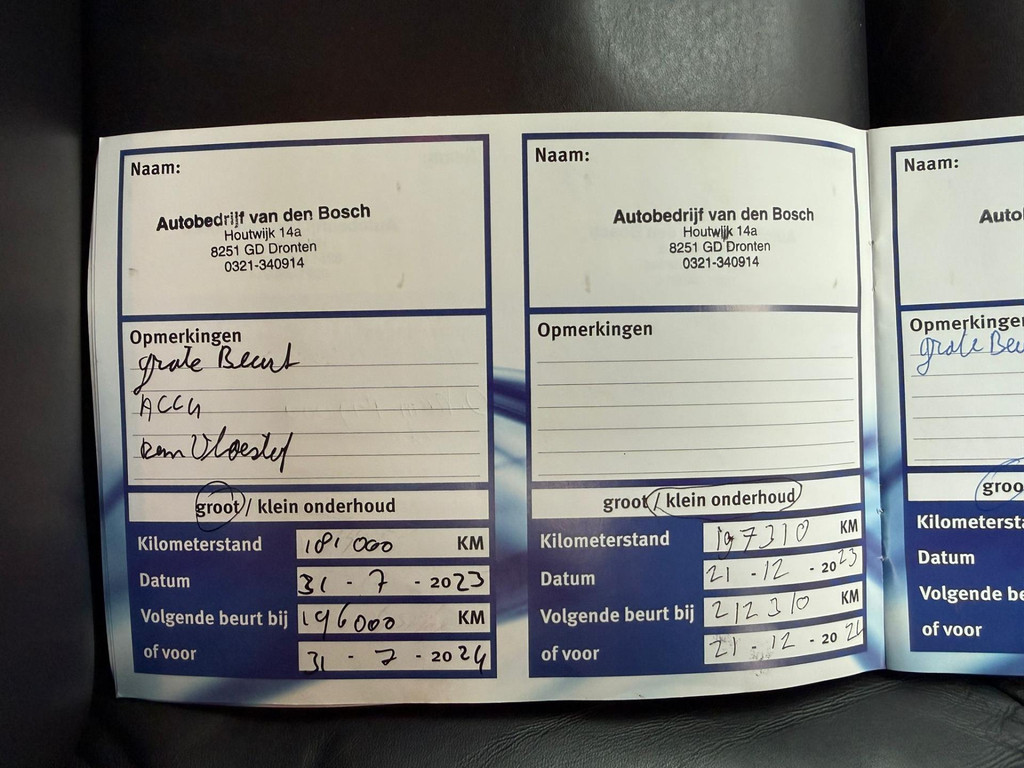 Naam:
Autobedrijf van den Bosch
Houtwijk 14a
8251 GD Dronten
0321-340914
Opmerkingen
grote Beurt
ACCU
rem Vloeistof
groot / klein onderhoud
Kilometerstand 181 000 KM
Datum 31 - 7 - 2023
Volgende beurt bij 196000 KM
of voor 31 - 7 - 2024
Naam:
Autobedrijf van den Bosch
Houtwijk 14a
8251 GD Dronten
0321-340914
Opmerkingen
groot / klein onderhoud
Kilometerstand 197310 KM
Datum 21 - 12 - 2023
Volgende beurt bij 212310 KM
of voor 21 - 12 - 20
Naam:
Autob
Opmerkingen
grote Beu
groo
Kilometersta
Datum
Volgende be
of voor